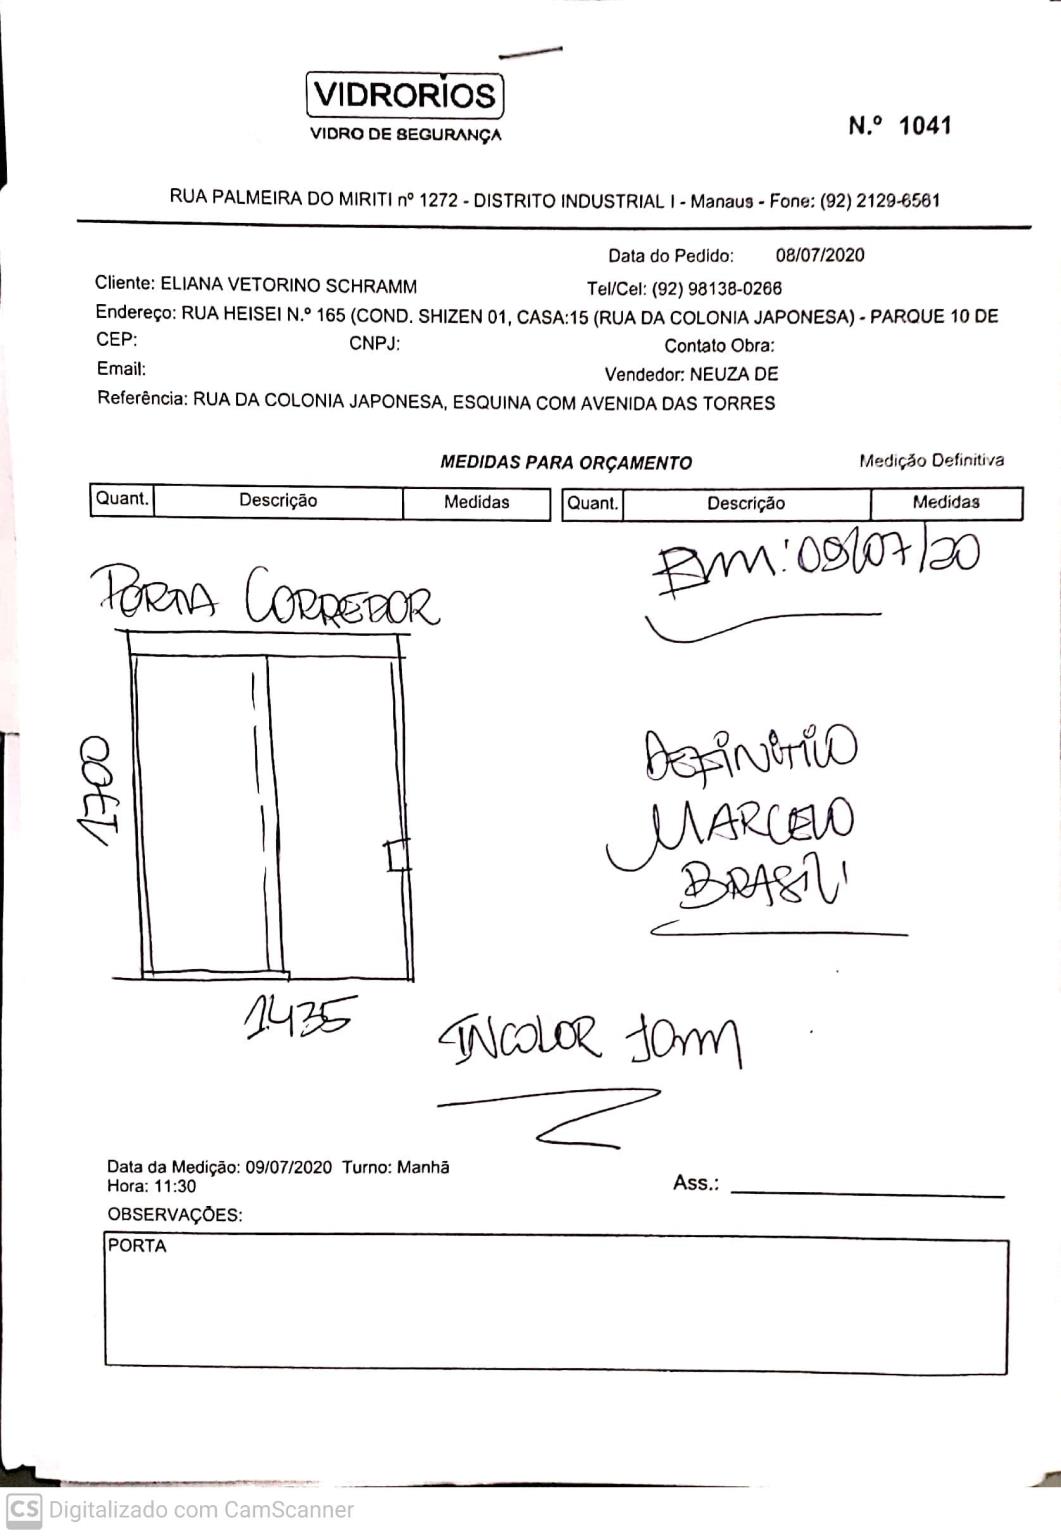 VIDRORIOS
VIDRO DE SEGURANÇA
N.º 1041
RUA PALMEIRA DO MIRITI nº 1272 - DISTRITO INDUSTRIAL I - Manaus - Fone: (92) 2129-6561
Data do Pedido: 08/07/2020
Cliente: ELIANA VETORINO SCHRAMM Tel/Cel: (92) 98138-0266
Endereço: RUA HEISEI N.º 165 (COND. SHIZEN 01, CASA:15 (RUA DA COLONIA JAPONESA) - PARQUE 10 DE
CEP: CNPJ: Contato Obra:
Email: Vendedor: NEUZA DE
Referência: RUA DA COLONIA JAPONESA, ESQUINA COM AVENIDA DAS TORRES
MEDIDAS PARA ORÇAMENTO Medição Definitiva
Quant. Descrição Medidas Quant. Descrição Medidas
EM: 09/07/20
PORTA CORREDOR
1700
DEFINITIVO
MARCELO
BRASIL
1435
INCOLOR 10mm
Data da Medição: 09/07/2020 Turno: Manhã
Hora: 11:30
Ass.:
OBSERVAÇÕES:
PORTA
CS Digitalizado com CamScanner